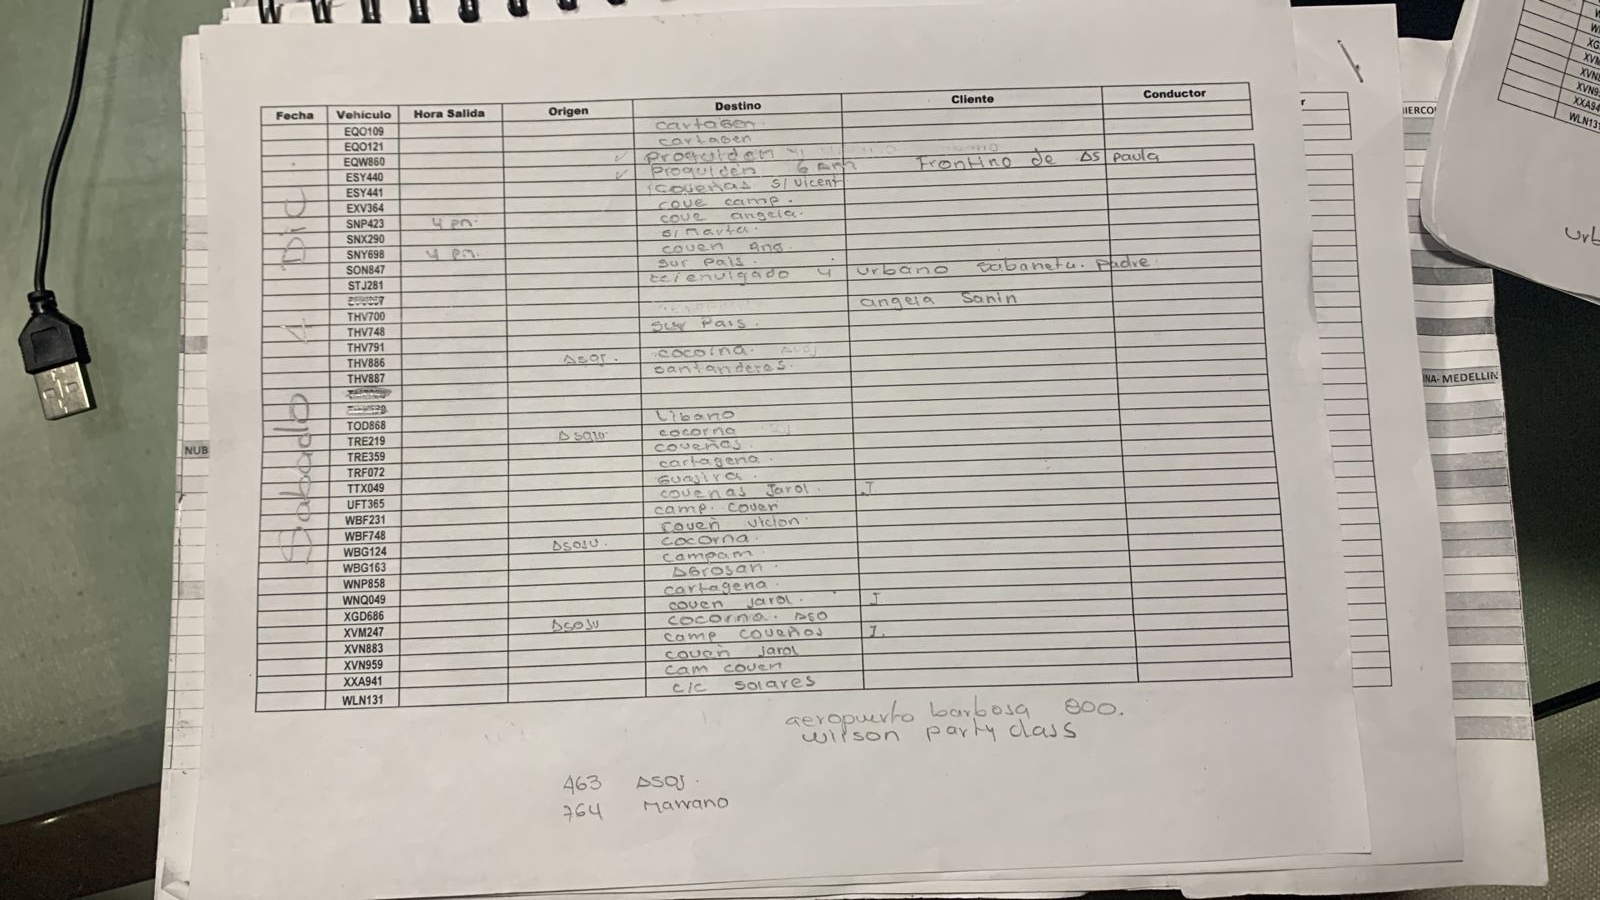 Fecha Vehículo Hora Salida Origen Destino Cliente Conductor
EQO109 cartagen.
EQO121 cartagen
EQW860 ✓ Proquiden y
ESY440 ✓ Proquiden 6 am Frontino de AS paula
ESY441 coveñas s/vicent
EXV364 cove camp.
SNP423 4 pm. cove angela.
SNX290 s/marta.
SNY698 4 pm. coven ang.
SON847 sur pais.
STJ281 y urbano sabaneta. padre.
angela Sanin
THV700
THV748 sur pais.
THV791
THV886 Asoj. cocorna.
THV887 santanderes.
TOD868 Libano
TRE219 cocorna
TRE359 coveñas.
TRF072 cartagena.
TTX049 guajira.
UFT365 covenas Jarol. J.
WBF231 camp. coven
WBF748 coveñ
WBG124 Asoju. cocorna.
WBG163 campam.
WNP858 Abrosan.
WNQ049 cartagena.
XGD686 coven jarol. J
XVM247 Asoju cocorna. ASO
XVN883 camp coveños J.
XVN959 coveñ jarol
XXA941 cam coven
WLN131 c/c solares
Sabado 4 Dic.
aeropuerto barbosa 800.
wilson party class
463 Asoj.
764 Marrano
NUB
INA- MEDELLIN
XXA94
WLN131